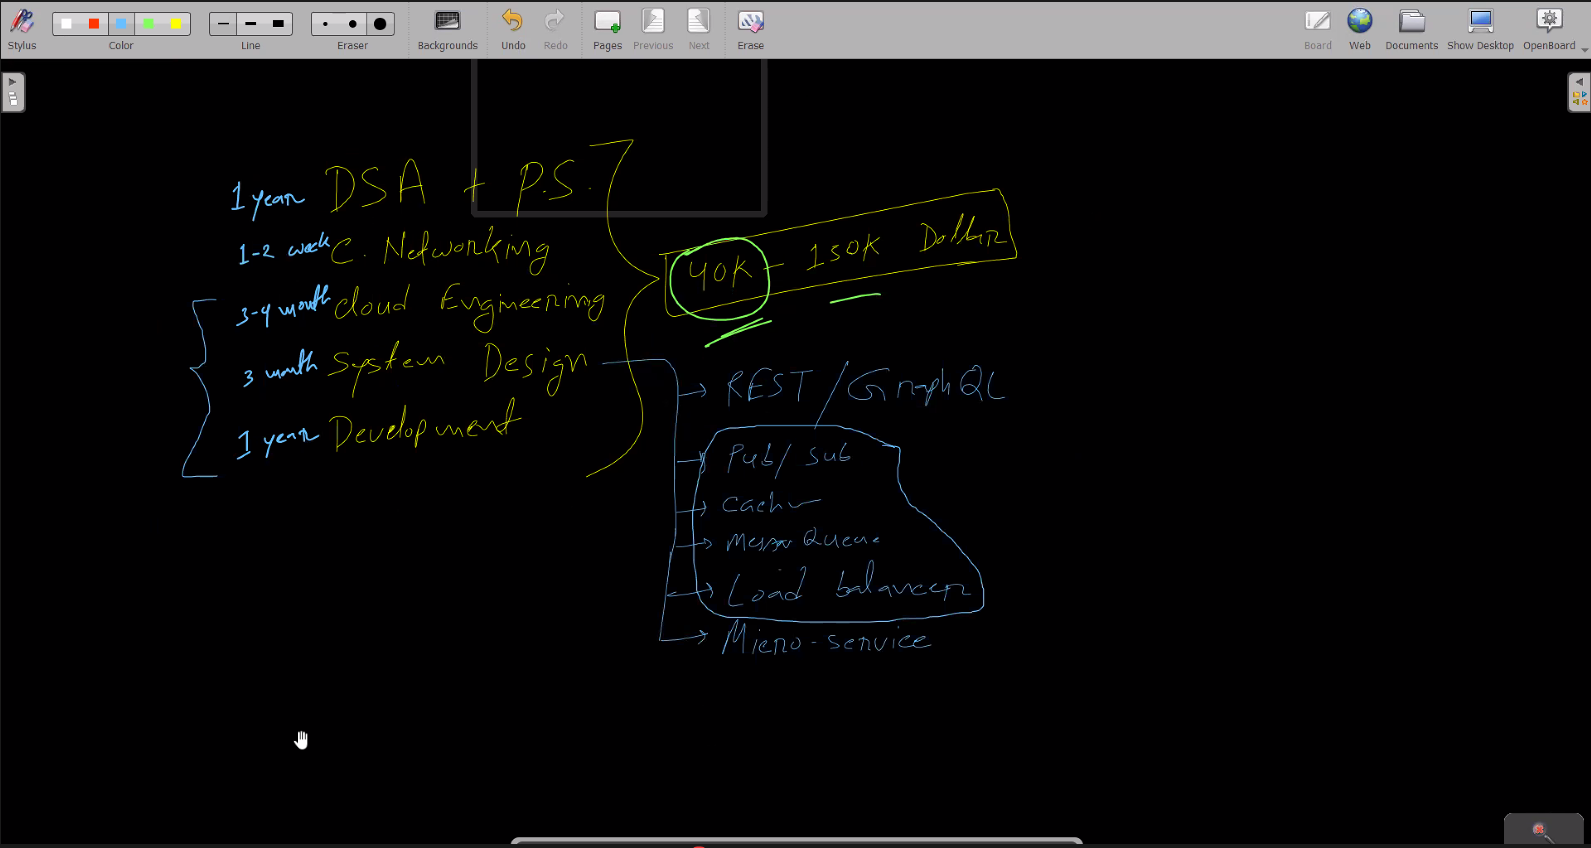 Stylus
Color
Line
Eraser
Backgrounds
Undo
Redo
Pages
Previous
Next
Erase
Board
Web
Documents
Show Desktop
OpenBoard
1 year DSA + P.S.
1-2 week C. Networking
3-4 month Cloud Engineering
3 month System Design
1 year Development
40K - 150K Dollar
REST/GraphQL
Pub/Sub
Cach
Queue
Load balancer
Micro-service